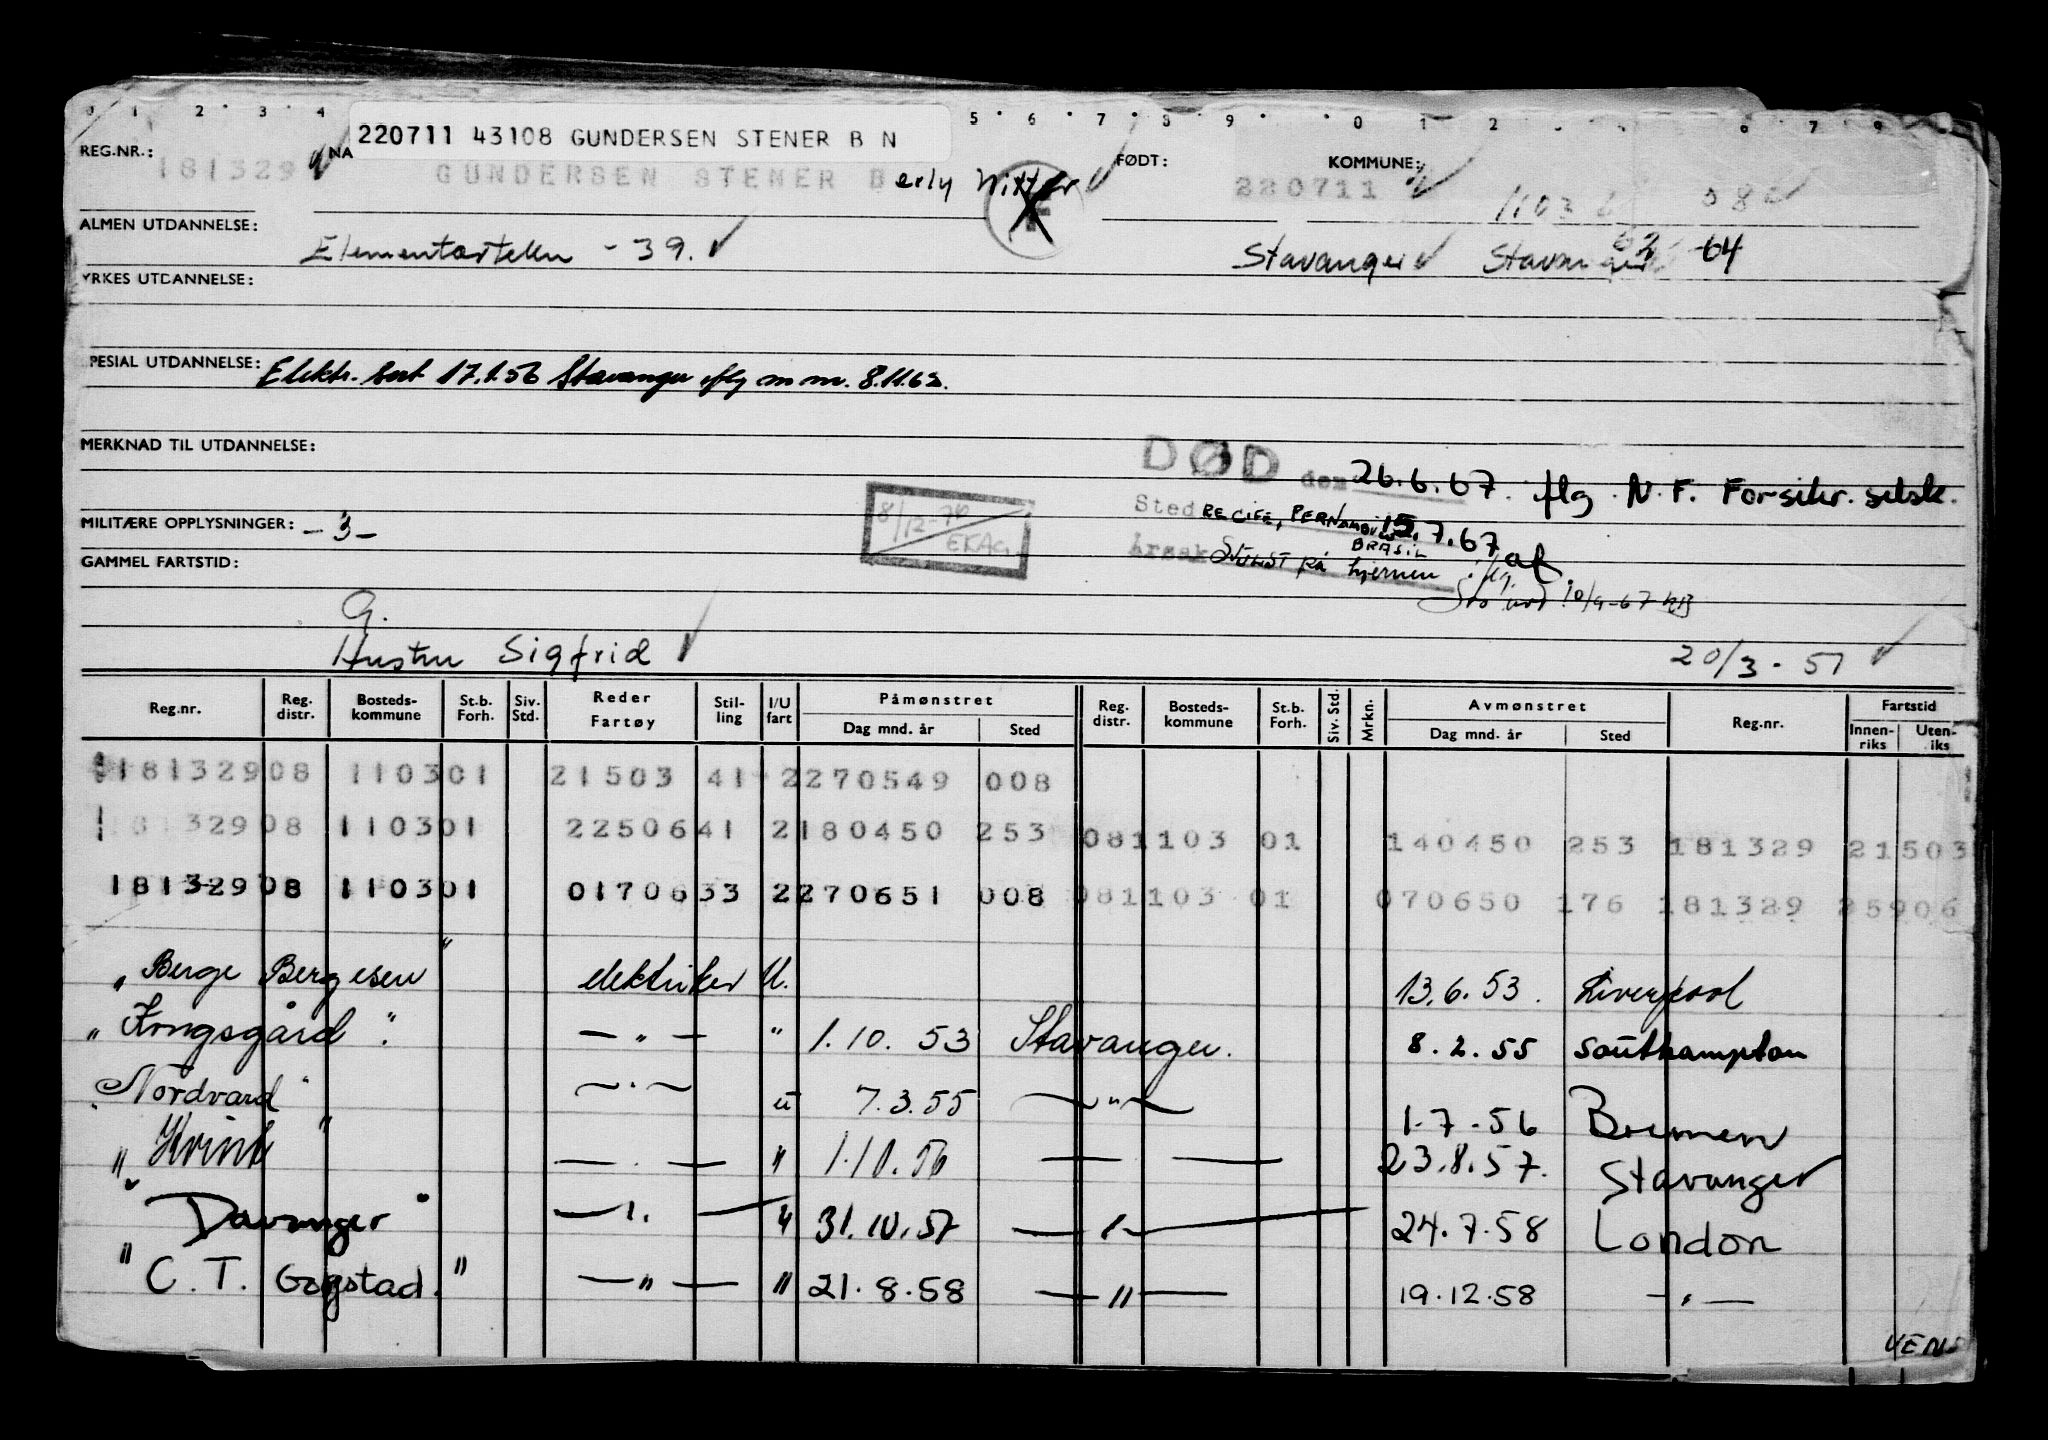 0 1 2 3 4 5 6 7 8 9 0 1 2 6 7 9
220711 43108 GUNDERSEN STENER B N
REG.NR.: 181329 NA GUNDERSEN STENER B FØDT: 220711 KOMMUNE: 1103
ALMEN UTDANNELSE: Stavanger 64
- 39.
YRKES UTDANNELSE:
PESIAL UTDANNELSE: Elektr. sert 17.1.56 Stavanger iflg m m. 8.11.62.
MERKNAD TIL UTDANNELSE:
DØD den 26.6.67. iflg. N. F. Forsikr. selsk.
Sted RECIFE, PERNAMBUCO BRASIL 15.7.67 af.
MILITÆRE OPPLYSNINGER: - 3 -
8/12-70
EKAG
Årsak Svulst på hjernen iflg.
10/9-67
GAMMEL FARTSTID:
G.
Hustru Sigfrid 20/3 - 51
Reg.nr. Reg. distr. Bosteds-kommune St.b. Forh. Siv. Std. Reder Fartøy Stil-ling I/U fart Påmønstret Dag mnd. år Sted Reg. distr. Bosteds-kommune St.b. Forh. Siv. Std. Mrkn. Avmønstret Dag mnd. år Sted Reg.nr. Fartstid Innen-riks Uten-iks
181329 08 1103 01 21503 41 2 270549 008
181329 08 1103 01 22506 41 2 180450 253 08 1103 01 140450 253 181329 21503
181329 08 1103 01 01706 33 2 270651 008 08 1103 01 070650 176 181329 25906
" Berge Bergesen " elektriker U. 13.6.53. Liverpool
" Kongsgård " — " — " 1.10.53 Stavanger. 8.2.55 Southampton
" Nordvard " — " — u 7.3.55 — " — 1.7.56 Bremen
" Kvint " — . — " 1.10.56 — — 23.8.57. Stavanger
" Davanger " — " — " 31.10.57 — " — 24.7.58 London
" C. T. Gogstad. " — " — " 21.8.58 — " — 19.12.58 — " —